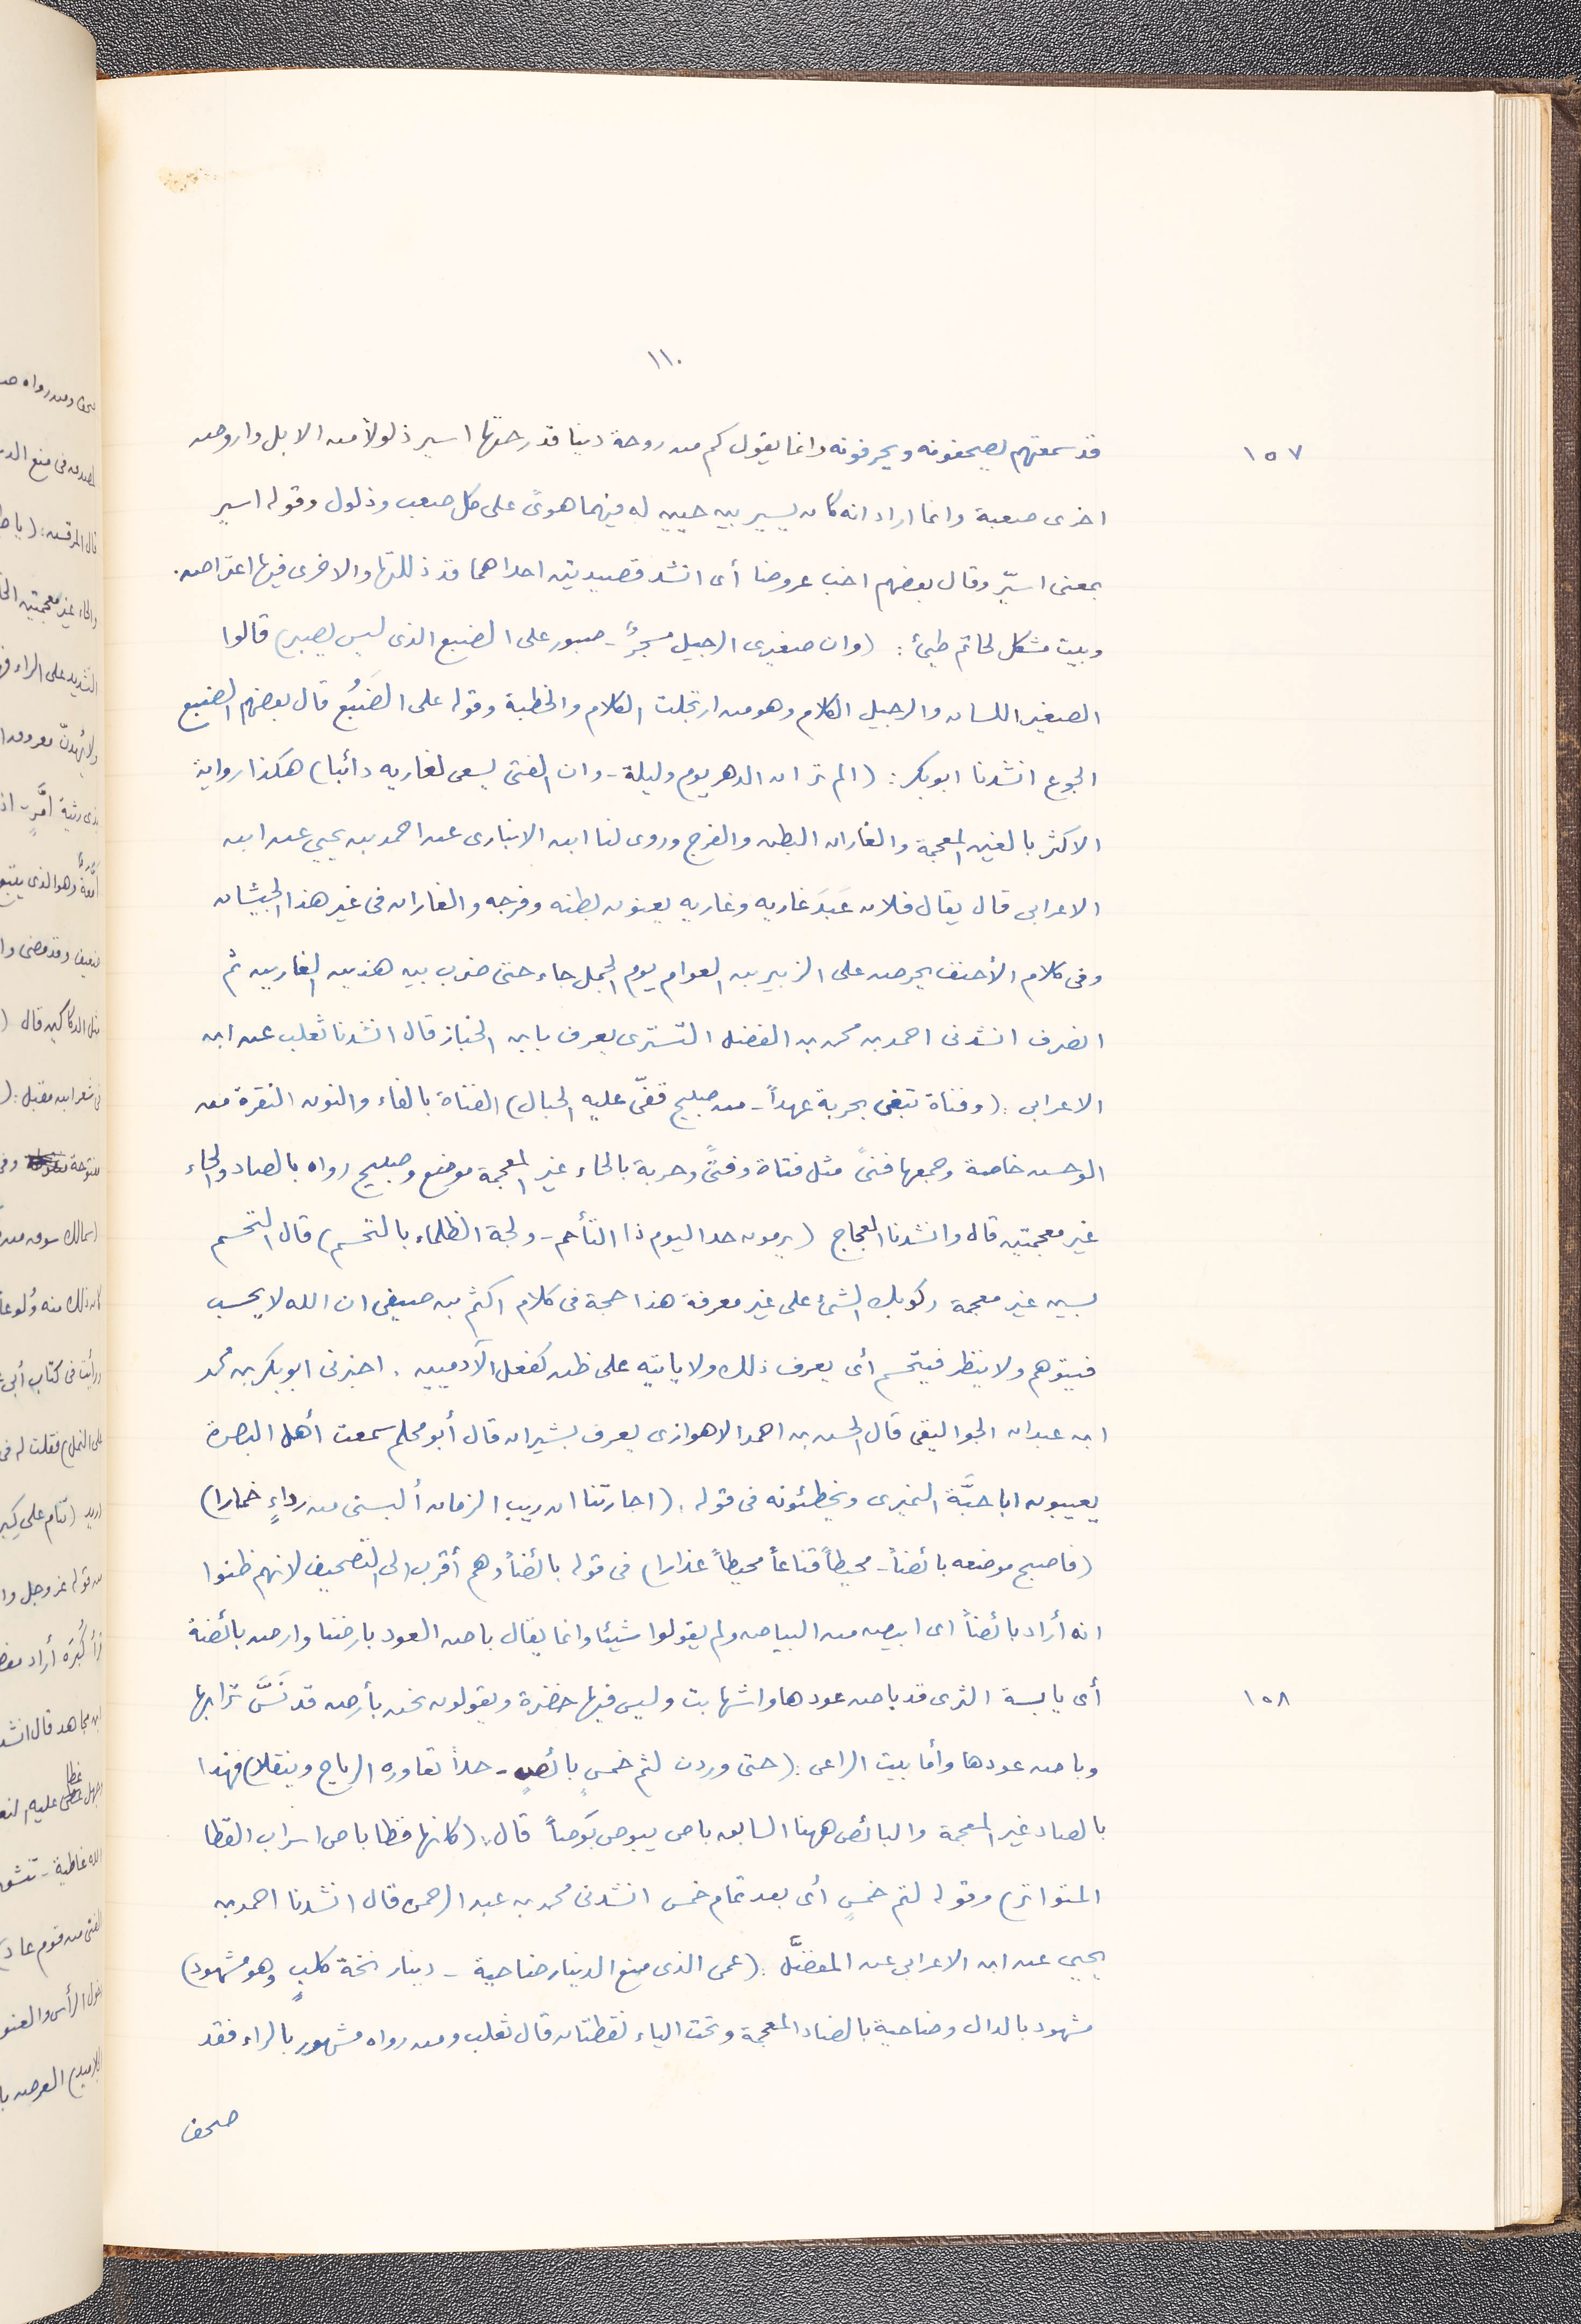 ١١٠
١٥٧
قد سمعتهم يصحفونه ويحرفونه وانما يقول كم من روحة دينا قد رحتها اسير ذلولاً من الابل واروض
اخرى صعبة وانما اراد انه كان يسير بين حبين له فيهما هوىً على كل صعب وذلول وقوله اسير
بمعنى اسيّر وقال بعضهم اخب عروضا أى انشد قصيدتين احداهما قد ذللتها والاخرى فيها اعتراض.
وبيت مشكل لحاتم طيئ: (وان صغيرى الرجيل مسجرٌ - صبور على الضبع الذى ليس يصبر) قالوا
الصغير اللسان والرجيل الكلام وهو من ارتجلت الكلام والخطبة وقوله على الضَبُع قال بعضهم الضبع
الجوع انشدنا ابو بكر: (الم تر ان الدهر يوم وليلة - وان الفتى يسعى لغاريه دائبا) هكذا رواية
الاكثر بالغين المعجمة والغاران البطن والفرج وروى لنا ابن الانبارى عن احمد بن يحيى عن ابن
الاعرابى قال يقال فلان عَبَدَ غاريه وغاريه يعنون بطنه وفرجه والغاران فى غير هذا الجيشان
وفى كلام الأحنف يحرض على الزبير بن العوام يوم الجمل جاء حتى ضرب بين هذين الغارين ثم
انصرف انشدنى احمد بن محمد بن الفضل التسترى يعرف بابن الخباز قال انشدنا ثعلب عن ابن
الاعرابى: (وفناة تبغى بحربة عهداً - من صبيح قفّى عليه الخبال) الفناة بالفاء والنون البقرة من
الوحش خاصة وجمعها فنىً مثل فتاة وفتىً وحربة بالحاء غير المعجمة موضع وصبيح رواه بالصاد والحاء
غير معجمتين قال وانشدنا العجاج (يرمون حد اليوم ذا التأحم - ولجة الظلماء بالتحسم) قال التحسم
بسين غير معجمة ركوبك الشئ على غير معرفة هذا حجة فى كلام اكثم بن صيفى ان الله لا يحسب
فيتوهم ولا ينظر فيتحسم أى يعرف ذلك ولا يأتيه على ظن كفعل الآدميين. اخبرنى ابو بكر بن محمد
ابن عبدان الجواليقى قال الحسن بن احمد الاهوازى يعرف بشيران قال أبو محلم سمعت أهل البصرة
يعيبون ابا حيَّة النميرى ويخطئونه فى قوله: (اجارتنا ان ريب الزمان ألبسنى من رداءٍ خمارا)
(فاصبح موضعه بائضاً - محيطاً قناعاً محيطاً عذارا) فى قوله بائضاً وهم أقرب الى التصحيف لانهم ظنوا
انه أراد بائضاً اى ابيض من البياض ولم يقولوا شيئا وانما يقال باض العود بارضنا وارض بائضة
١٥٨
أى يابسة الثرى قد باض عودها واشهابت وليس فيها خضرة ويقولون نحن بأرض قد نَسَّ ترابها
وباض عودها وأما بيت الراعى: (حتى وردن لتم خمسٍ بائصٍ - جداً تعاوره الرياح وينقلا) فهذا
بالصاد غير المعجمة والبائص ههنا السابق باص يبوص بَوصاً قال: (كانها قطا باص اسراب القطا
المتواتر) وقوله لتم خمسٍ أى بعد تمام خمس انشدنى محمد بن عبد الرحمن قال انشدنا احمد بن
يحيى عن ابن الاعرابى عن المفضَّل: (عمى الذى منع الدينار ضاحية - دينار نخة كلبٍ وهو مشهود)
مشهود بالدال وضاحية بالضاد المعجمة وتحت الياء نقطتان قال ثعلب ومن رواه مشهور بالراء فقد
صحف